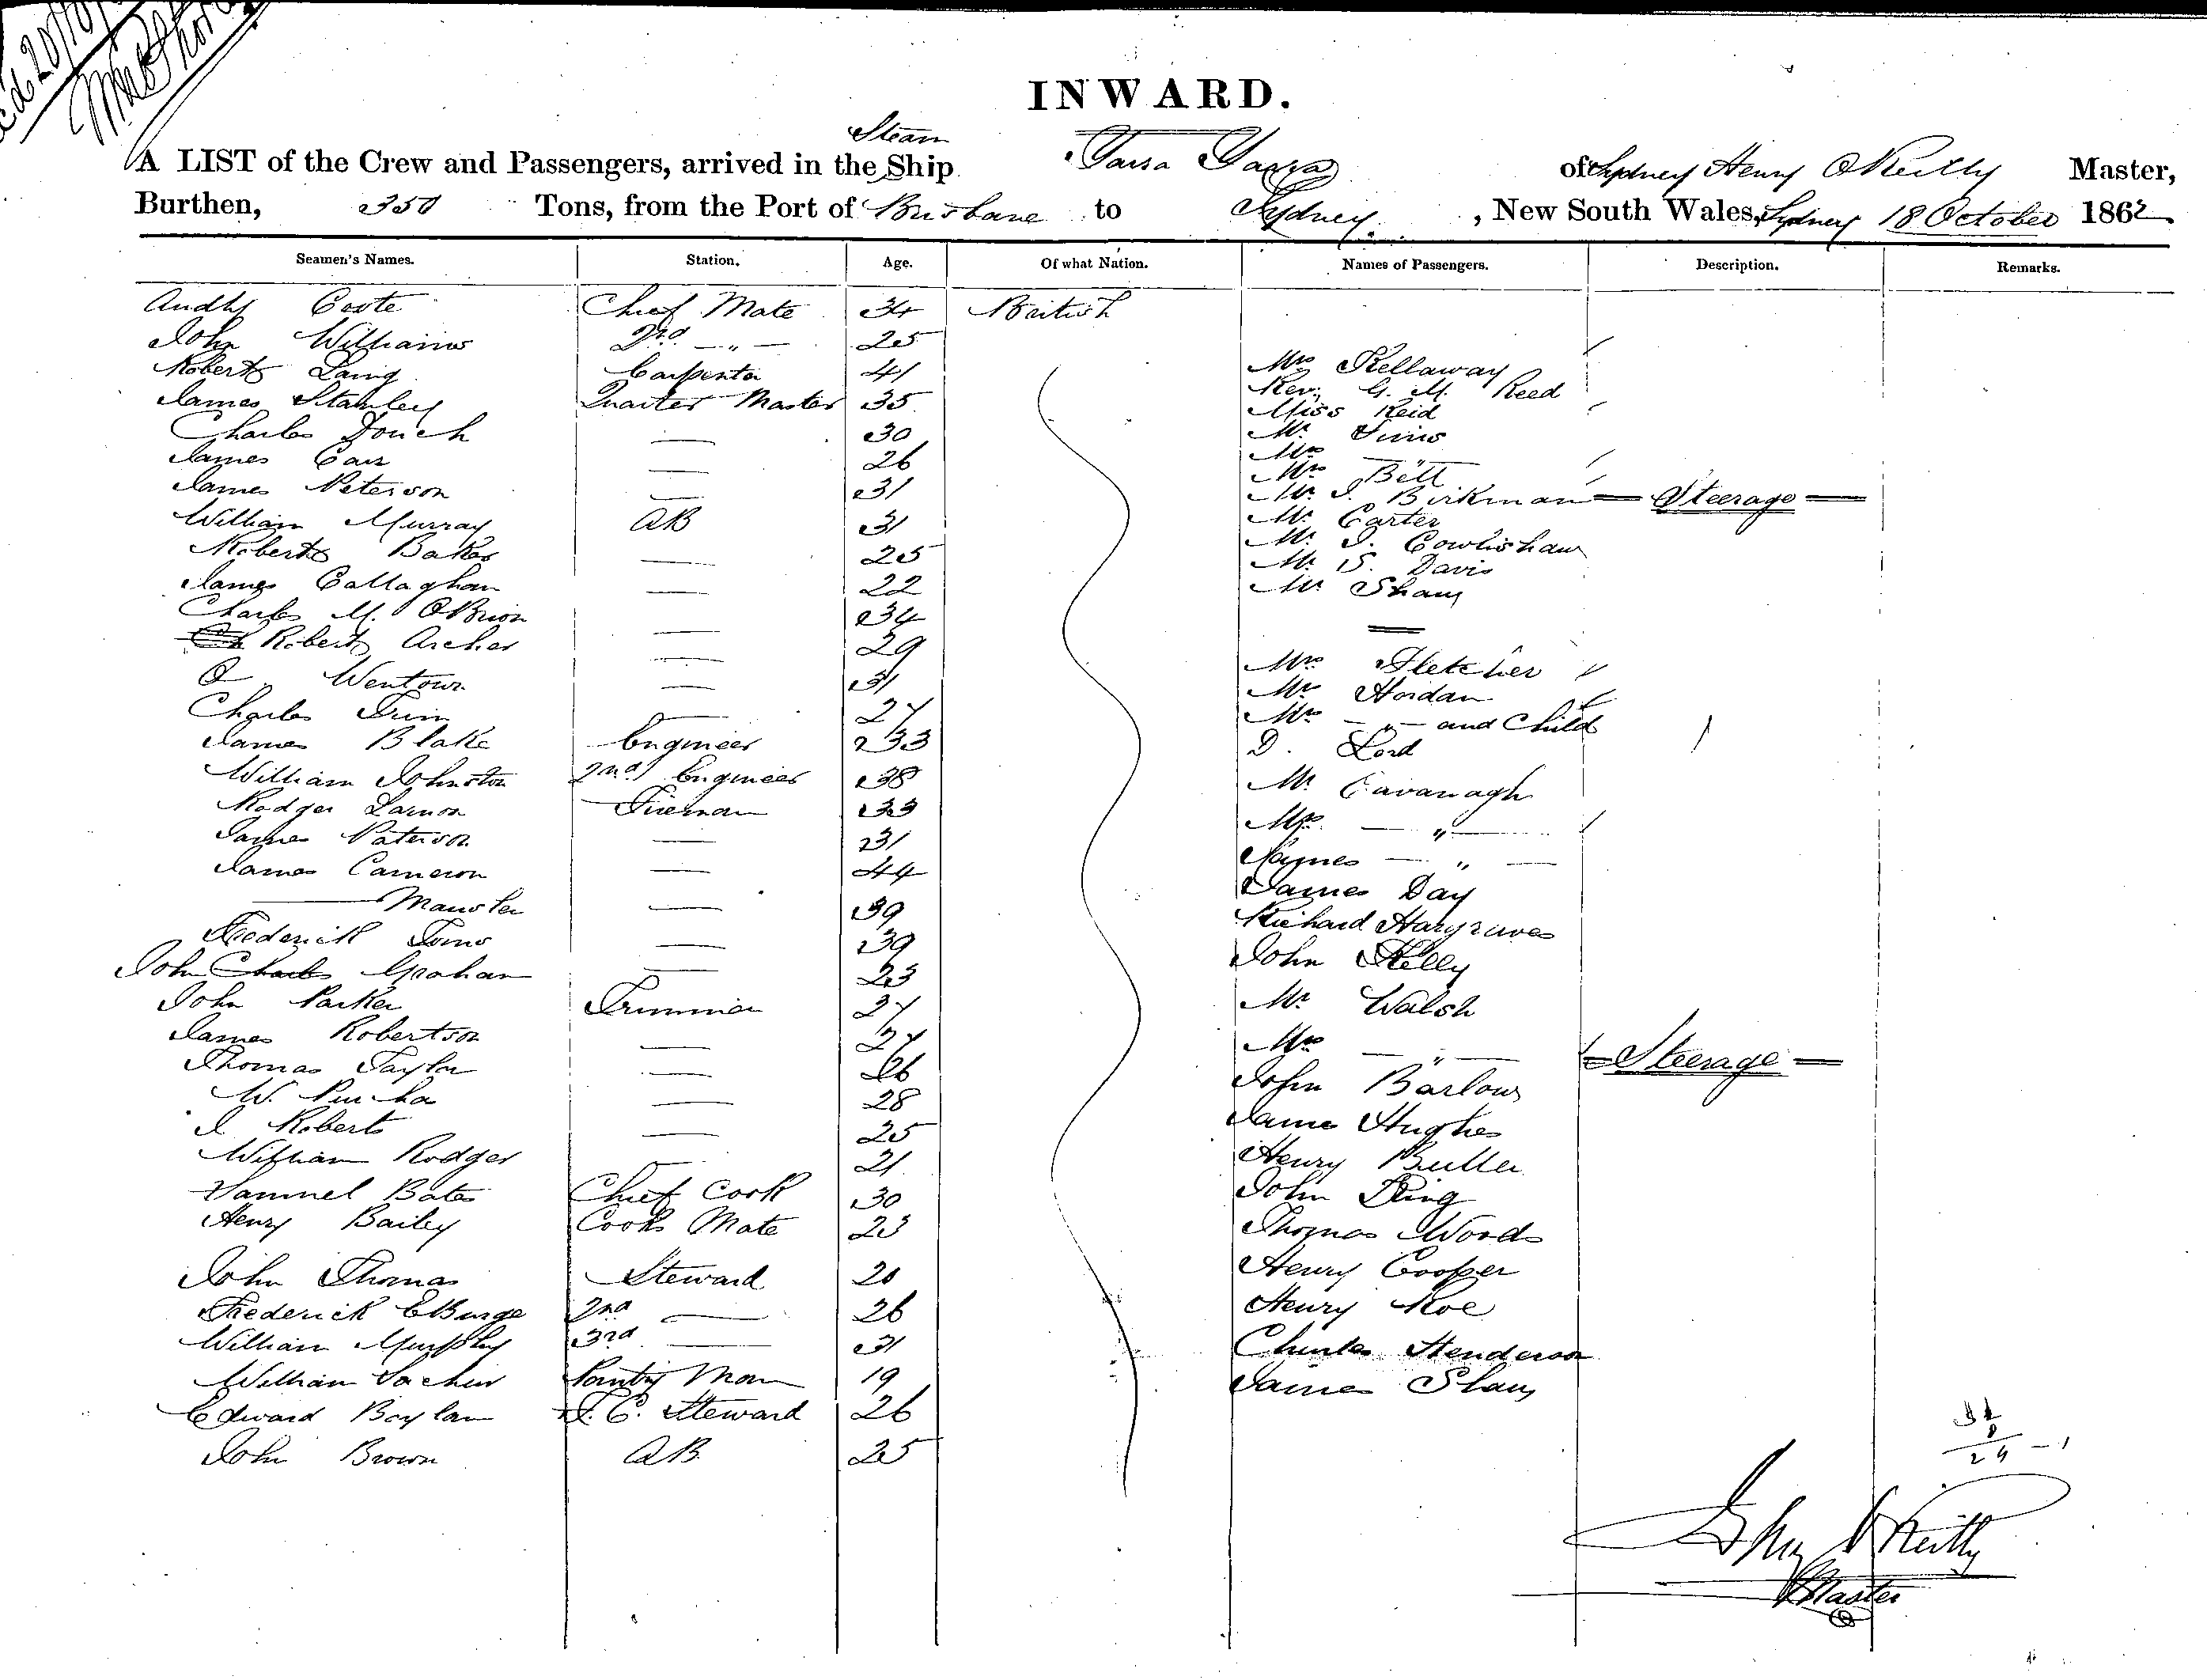 INWARD.
Steam
A LIST of the Crew and Passengers, arrived in the Ship Yarra Yarra of Sydney Henry O'Reilly Master,
Burthen, 350 Tons, from the Port of Brisbane to Sydney, New South Wales, Sydney 18 October 1862
Seamen's Names. Station. Age. Of what Nation. Names of Passengers. Description. Remarks.
Coote Chief Mate 34 British
John Williams 2nd — " — 25
Robert Laing Carpenter 41 Mrs Kellaway
James Stanley Quarter Master 35 Rev. G. M. Reed
Miss Reid
Charles Douch — 30 Mr Sims
James Carr — 26 Mrs "
Mrs Bett
James Peterson — 31 Mr J. Birkman — Steerage —
William Murray AB 31 Mr Carter
Robert Baker — 25 Mr J. Cowlishaw
Mr S. Davis
James Callaghan — 22 Mr Shaw
Charles M. O'Brien — 34
Robert Archer — 29
Wentown — 31 Mrs Fletcher
Charles — 27 Mr Hordan
Mrs — " — and Child
James Blake Engineer 33 D. Lord
William Johnston 2nd Engineer 38 Mr Cavanagh
Rodger Lamon Fireman 33
James Paterson — 31 Mrs — " —
James Cameron — 44 James — " —
— — 39 James Day
Richard Hargraves
Frederick Toms — 39 John Kelly
John Charles Graham — 23
John Parker Trimmer 27 Mr Walsh
James Robertson — 27 Mrs — " — — Steerage —
Thomas Taylor — 26 John Barlow
W. — 28
J Roberts — 25 James Hughes
William Rodger — 21 Henry Butler
Samuel Bates Chief Cook 30 John King
Henry Bailey Cooks Mate 23 Thomas Woods
John Thomas Steward 20 Henry Cooper
Frederick 2nd — 26 Henry Roe
William Murphy 3rd — 31 Charles Henderson
William Pantry Man 19 James Shaw
Edward Boylan Steward 26
John Brown AB 25
24 - 1
O'Reilly
Master